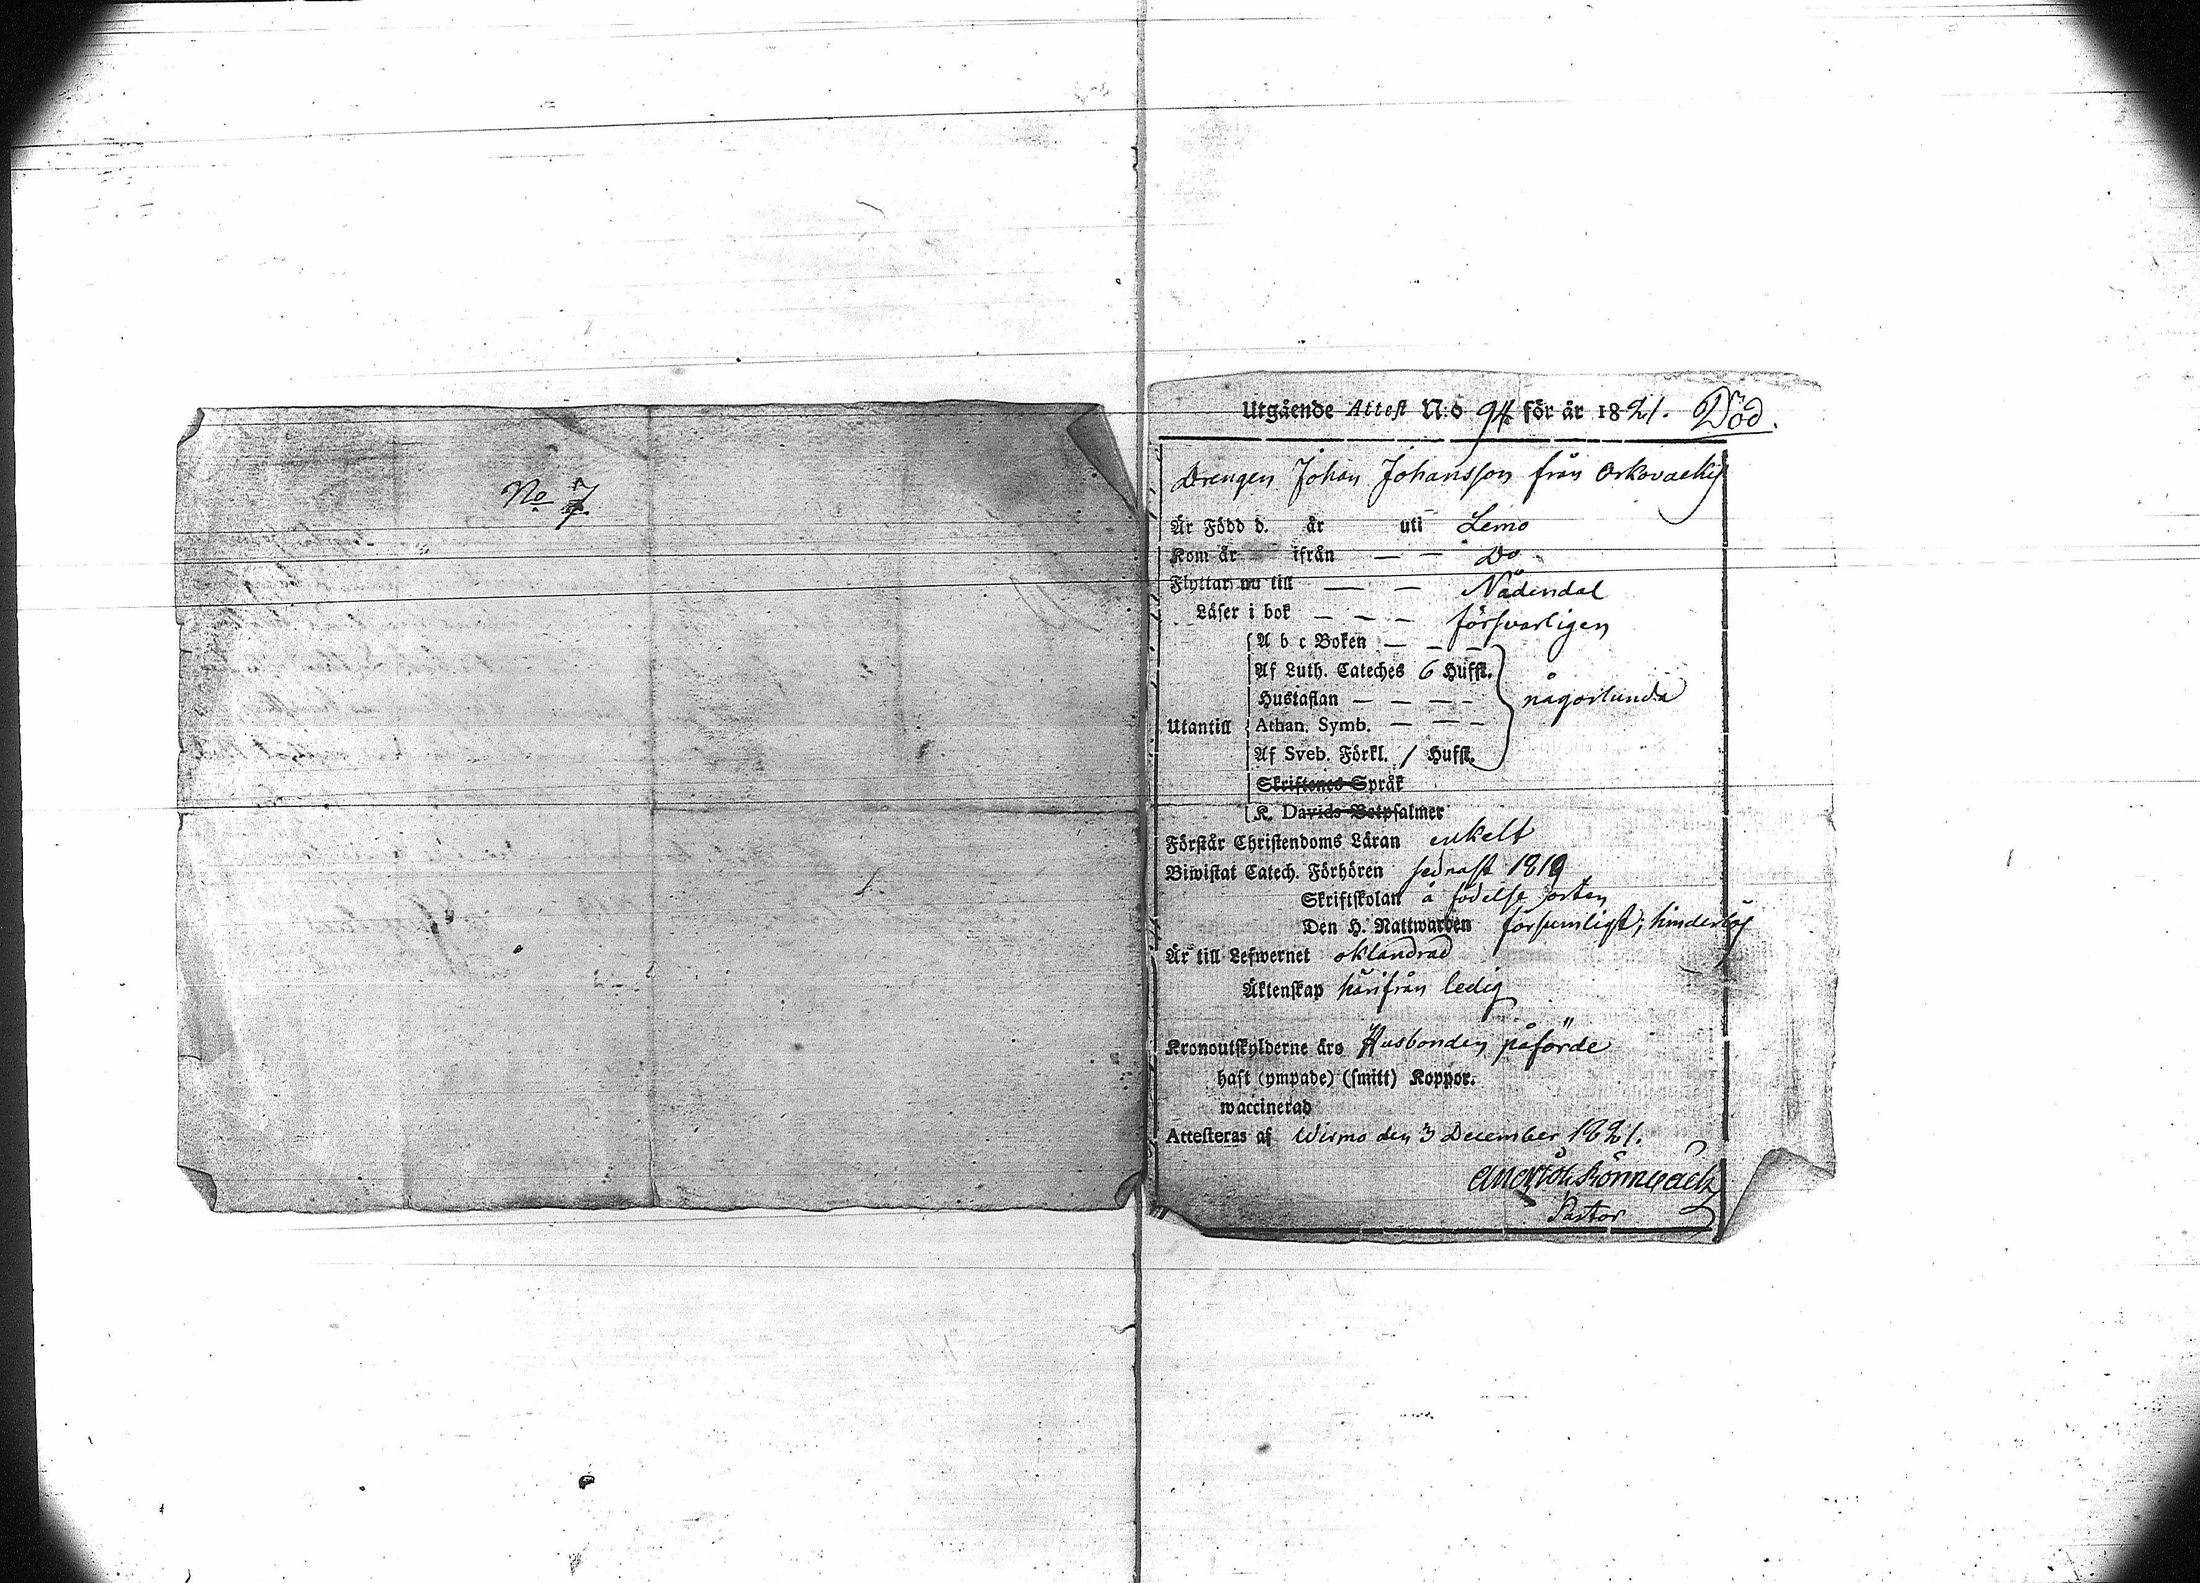 No 7
Utgående Attest N:o 94 för år 1821. Död.
Drengen Johan Johansson från Orkovacky
Är Född d. år uti Lemo
Kom år ifrån — — Do
Flyttar nu till — — Nådendal
Läser i bok — — — försvarligen
A b c Boken — — —
Af Luth. Cateches 6 Hufst.
Hustaflan — — — — någorlunda
Utantill Athan. Symb. — — —
Af Sveb. Förkl. / Hufst.
Skriftenes Språk
K. Davids Botpsalmer
Förstår Christendoms Läran enkelt
Biwistat Catech. Förhören sednast 1819
Skriftskolan å födelse orten
Den H. Nattwarden försumligt; hinderlös
Är till Lefwernet oklandrad
Äktenskap härifrån ledig
Kronoutskylderne äro Husbonden påförde
haft (ympade) (smitt) Koppor.
waccinerad
Attesteras af Wirmo den 3 December 1821.
Rönnbäck
Pastor